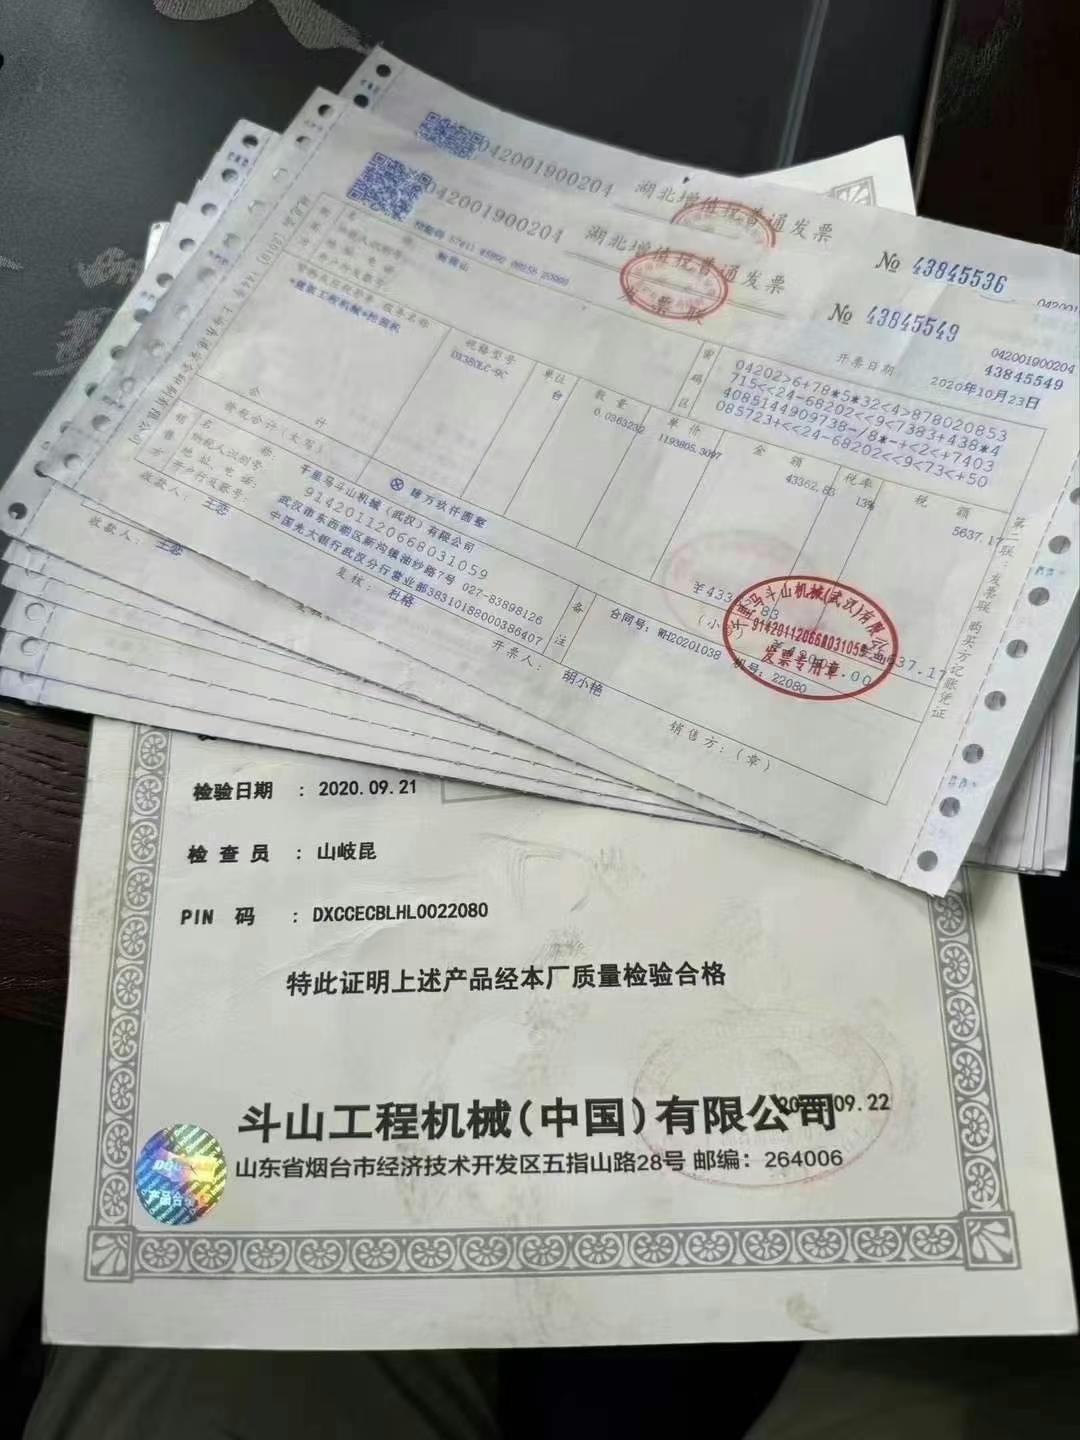 042001900204
湖北增值税普通发票
№ 43845536
042001900204
湖北增值税普通发票
№ 43845549
发票联
042001900204
43845549
开票日期
2020年10月23日
04202>6+78*5*32<4>878020853
715<<24-68202<<9<7383+438*4
4085144909738-/8*-+<2<+7403
085723+<<24-68202<<9<73<+50
规格型号
DX380LC-9C
单位
台
数量
0.0363232
单价
1193805.3097
金额
43362.83
税率
13%
税额
5637.17
合计
价税合计（大写）
⊗ 肆万玖仟圆整
名称：
千里马斗山机械（武汉）有限公司
纳税人识别号：
914201120668031059
地址、电话：
武汉市东西湖区新沟镇油纱路7号 027-83898126
开户行及账号：
中国光大银行武汉分行营业部38310188000386407
备注
合同号：WH20201038 机号：22080
收款人：
王恋
复核：
杜格
开票人：
胡小艳
销售方：（章）
第二联：发票联 购买方记账凭证
发票专用章
收款人：
王恋
检验日期 ：2020.09.21
检查员 ：山岐昆
PIN 码 ：DXCCECBLHL0022080
特此证明上述产品经本厂质量检验合格
斗山工程机械（中国）有限公司
山东省烟台市经济技术开发区五指山路28号 邮编：264006